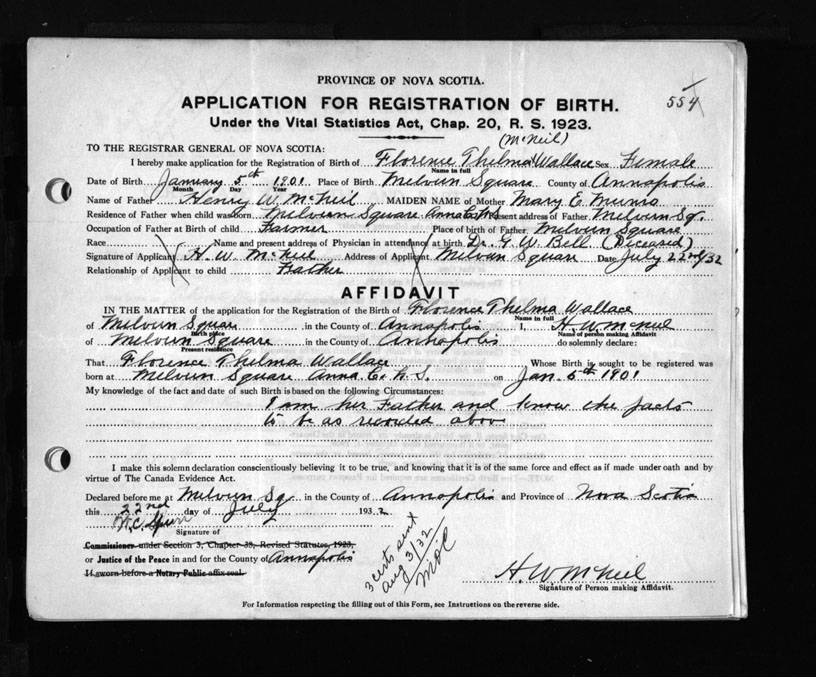 PROVINCE OF NOVA SCOTIA.
554
APPLICATION FOR REGISTRATION OF BIRTH.
Under the Vital Statistics Act, Chap. 20, R. S. 1923.
(McNeil)
TO THE REGISTRAR GENERAL OF NOVA SCOTIA:
I hereby make application for the Registration of Birth of Florence Thelma Wallace Sex Female
Name in full
Date of Birth January 5th 1901 Place of Birth Melvern Square County of Annapolis
Month Day Year
Name of Father Henry W. McNeil MAIDEN NAME of Mother Mary E Munro
Residence of Father when child was born Melvern Square Anna Co N.S. Present address of Father Melvern Sq.
Occupation of Father at Birth of child Farmer Place of birth of Father Melvern Square
Race Name and present address of Physician in attendance at birth Dr. G. W. Bell (Deceased)
Signature of Applicant H. W. McNeil Address of Applicant Melvern Square Date July 22nd/32
Relationship of Applicant to child Father
AFFIDAVIT
IN THE MATTER of the application for the Registration of the Birth of Florence Thelma Wallace
Name in full
of Melvern Square in the County of Annapolis I, H W McNeil
Birth place Name of person making Affidavit
of Melvern Square in the County of Annapolis do solemnly declare:
Present residence
That Florence Thelma Wallace Whose Birth is sought to be registered was
born at Melvern Square Anna Co. N. S. on Jan. 5th 1901
My knowledge of the fact and date of such Birth is based on the following Circumstances:
I am her Father and know the facts
to be as recorded above
I make this solemn declaration conscientiously believing it to be true, and knowing that it is of the same force and effect as if made under oath and by
virtue of The Canada Evidence Act.
Declared before me at Melvern Sq. in the County of Annapolis and Province of Nova Scotia
this 22nd day of July 1932
W. C. Spurr
Signature of
Commissioner under Section 3, Chapter 38, Revised Statutes, 1923,
or Justice of the Peace in and for the County of Annapolis
If sworn before a Notary Public affix seal.
3 certs sent
Aug 3/32
MOC
H. W McNeil
Signature of Person making Affidavit.
For Information respecting the filling out of this Form, see Instructions on the reverse side.